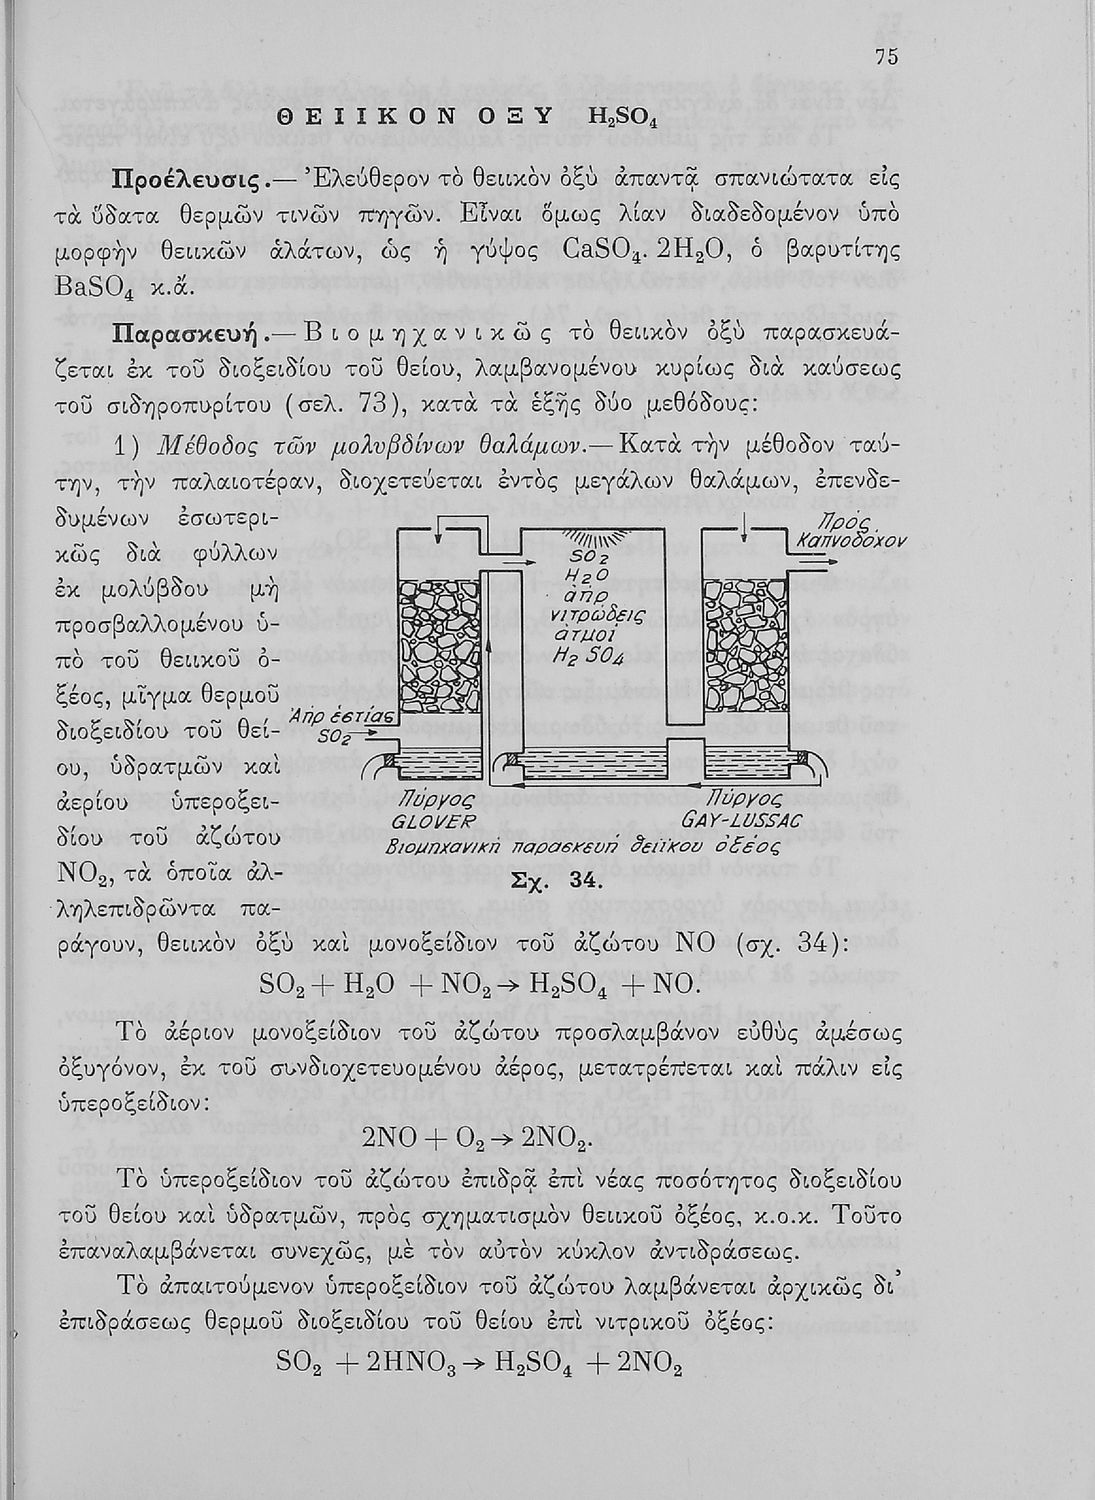 75
ΘΕΙΙΚΟΝ ΟΞΥ H₂SO₄
Προέλευσις.— Ἐλεύθερον τὸ θειικὸν ὀξὺ ἀπαντᾷ σπανιώτατα εἰς
τὰ ὕδατα θερμῶν τινῶν πηγῶν. Εἶναι ὅμως λίαν διαδεδομένον ὑπὸ
μορφὴν θειικῶν ἁλάτων, ὡς ἡ γύψος CaSO₄. 2H₂O, ὁ βαρυτίτης
BaSO₄ κ.ἄ.
Παρασκευή.— Βιομηχανικῶς τὸ θειικὸν ὀξὺ παρασκευά-
ζεται ἐκ τοῦ διοξειδίου τοῦ θείου, λαμβανομένου κυρίως διὰ καύσεως
τοῦ σιδηροπυρίτου (σελ. 73), κατὰ τὰ ἑξῆς δύο μεθόδους:
1) Μέθοδος τῶν μολυβδίνων θαλάμων.— Κατὰ τὴν μέθοδον ταύ-
την, τὴν παλαιοτέραν, διοχετεύεται ἐντὸς μεγάλων θαλάμων, ἐπενδε-
δυμένων ἐσωτερι-
κῶς διὰ φύλλων
ἐκ μολύβδου μὴ
προσβαλλομένου ὑ-
πὸ τοῦ θειικοῦ ὀ-
ξέος, μῖγμα θερμοῦ
διοξειδίου τοῦ θεί-
ου, ὑδρατμῶν καὶ
ἀερίου ὑπεροξει-
δίου τοῦ ἀζώτου
NO₂, τὰ ὁποῖα ἀλ-
ληλεπιδρῶντα πα-
ράγουν, θειικὸν ὀξὺ καὶ μονοξείδιον τοῦ ἀζώτου NO (σχ. 34):
Πρὸς
Καπνοδόχον
SO₂
H₂O
ἀήρ
νιτρώδεις
ἀτμοί
H₂SO₄
Ἀήρ ἑστίας
SO₂
Πύργος
GLOVER
Πύργος
GAY-LUSSAC
Βιομηχανική παρασκευή θειϊκοῦ ὀξέος
Σχ. 34.
SO₂ + H₂O + NO₂ → H₂SO₄ + NO.
Τὸ ἀέριον μονοξείδιον τοῦ ἀζώτου προσλαμβάνον εὐθὺς ἀμέσως
ὀξυγόνον, ἐκ τοῦ συνδιοχετευομένου ἀέρος, μετατρέπεται καὶ πάλιν εἰς
ὑπεροξείδιον:
2NO + O₂ → 2NO₂.
Τὸ ὑπεροξείδιον τοῦ ἀζώτου ἐπιδρᾷ ἐπὶ νέας ποσότητος διοξειδίου
τοῦ θείου καὶ ὑδρατμῶν, πρὸς σχηματισμὸν θειικοῦ ὀξέος, κ.ο.κ. Τοῦτο
ἐπαναλαμβάνεται συνεχῶς, μὲ τὸν αὐτὸν κύκλον ἀντιδράσεως.
Τὸ ἀπαιτούμενον ὑπεροξείδιον τοῦ ἀζώτου λαμβάνεται ἀρχικῶς δι᾽
ἐπιδράσεως θερμοῦ διοξειδίου τοῦ θείου ἐπὶ νιτρικοῦ ὀξέος:
SO₂ + 2HNO₃ → H₂SO₄ + 2NO₂